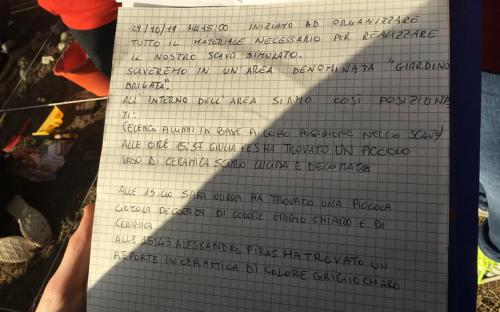 29/10/19 ALLE 15:00 INIZIAMO AD ORGANIZZARE
TUTTO IL MATERIALE NECESSARIO PER REALIZZARE
IL NOSTRO SCAVO SIMULATO.
SCAVEREMO IN UN'AREA DENOMINATA "GIARDINO
BRIGATA".
ALL'INTERNO DELL'AREA SIAMO COSÌ POSIZIONA
TI:
(ELENCO ALUNNI IN BASE A LORO POSIZIONE NELLO SCAVO)
ALLE ORE 15:37 GIULIA HA TROVATO UN PICCOLO
VASO DI CERAMICA SCURO LUCIDA E DECORATA
ALLE 15:40 SARA HA TROVATO UNA PICCOLA
CIOTOLA DECORATA DI COLORE GRIGIO CHIARO E DI
CERAMICA
ALLE 15:43 ALESSANDRO PIRAS HA TROVATO UN
REPERTO IN CERAMICA DI COLORE GRIGIO CHIARO